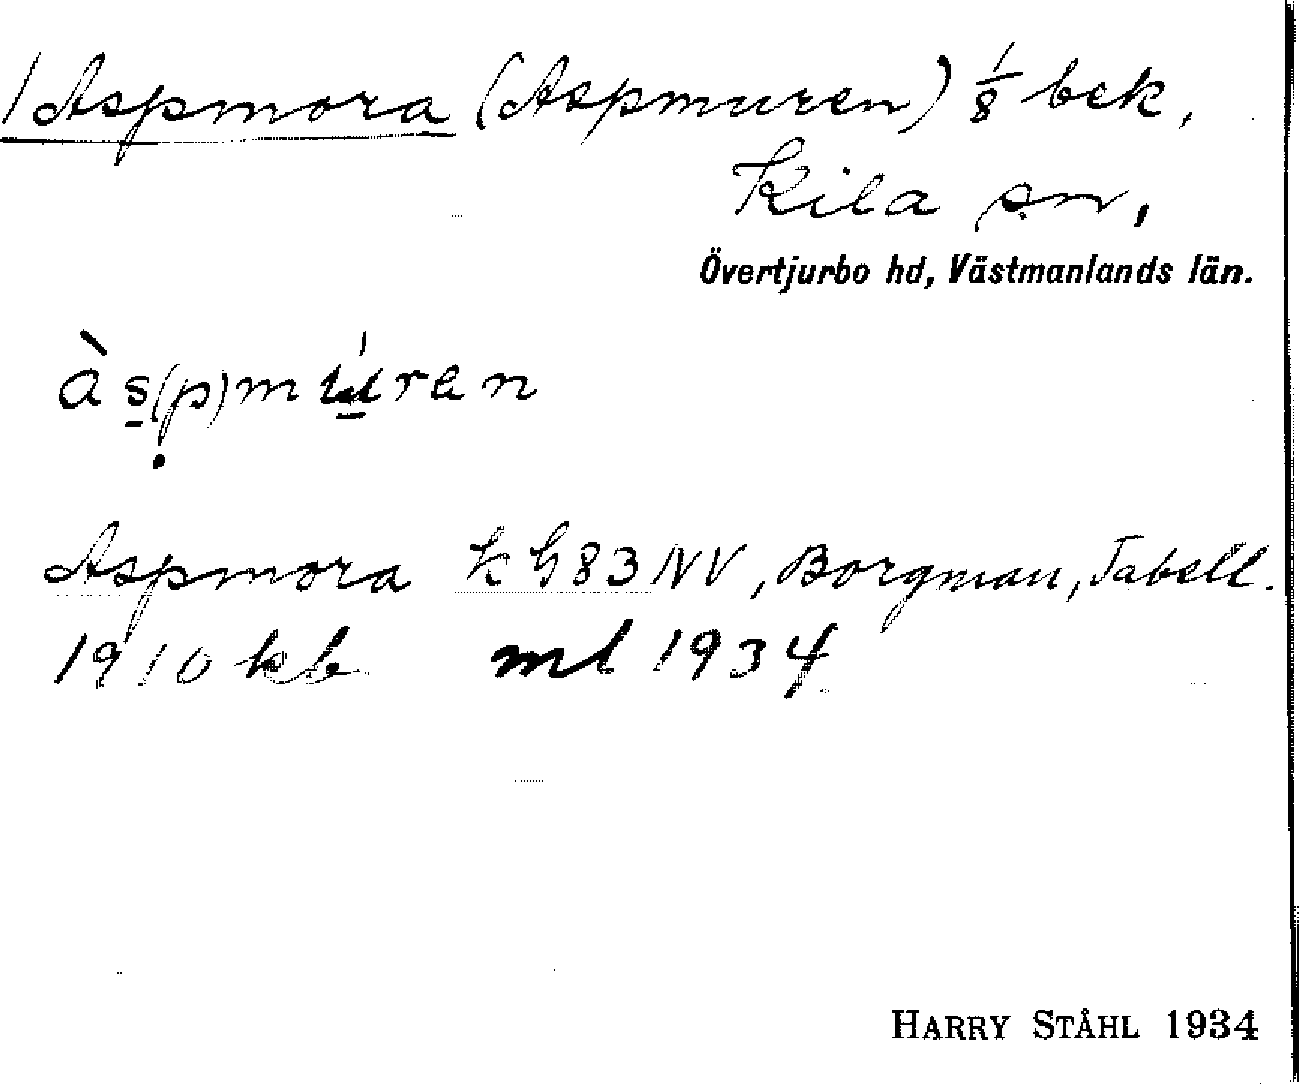 / Aspmora (Aspmuren) 1/8 bek,
Kila sn,
Övertjurbo hd, Västmanlands län.
às(p)múren
Aspmora k G83NV, Borgman, Tabell.
1910 kb ml 1934
HARRY STÅHL 1934